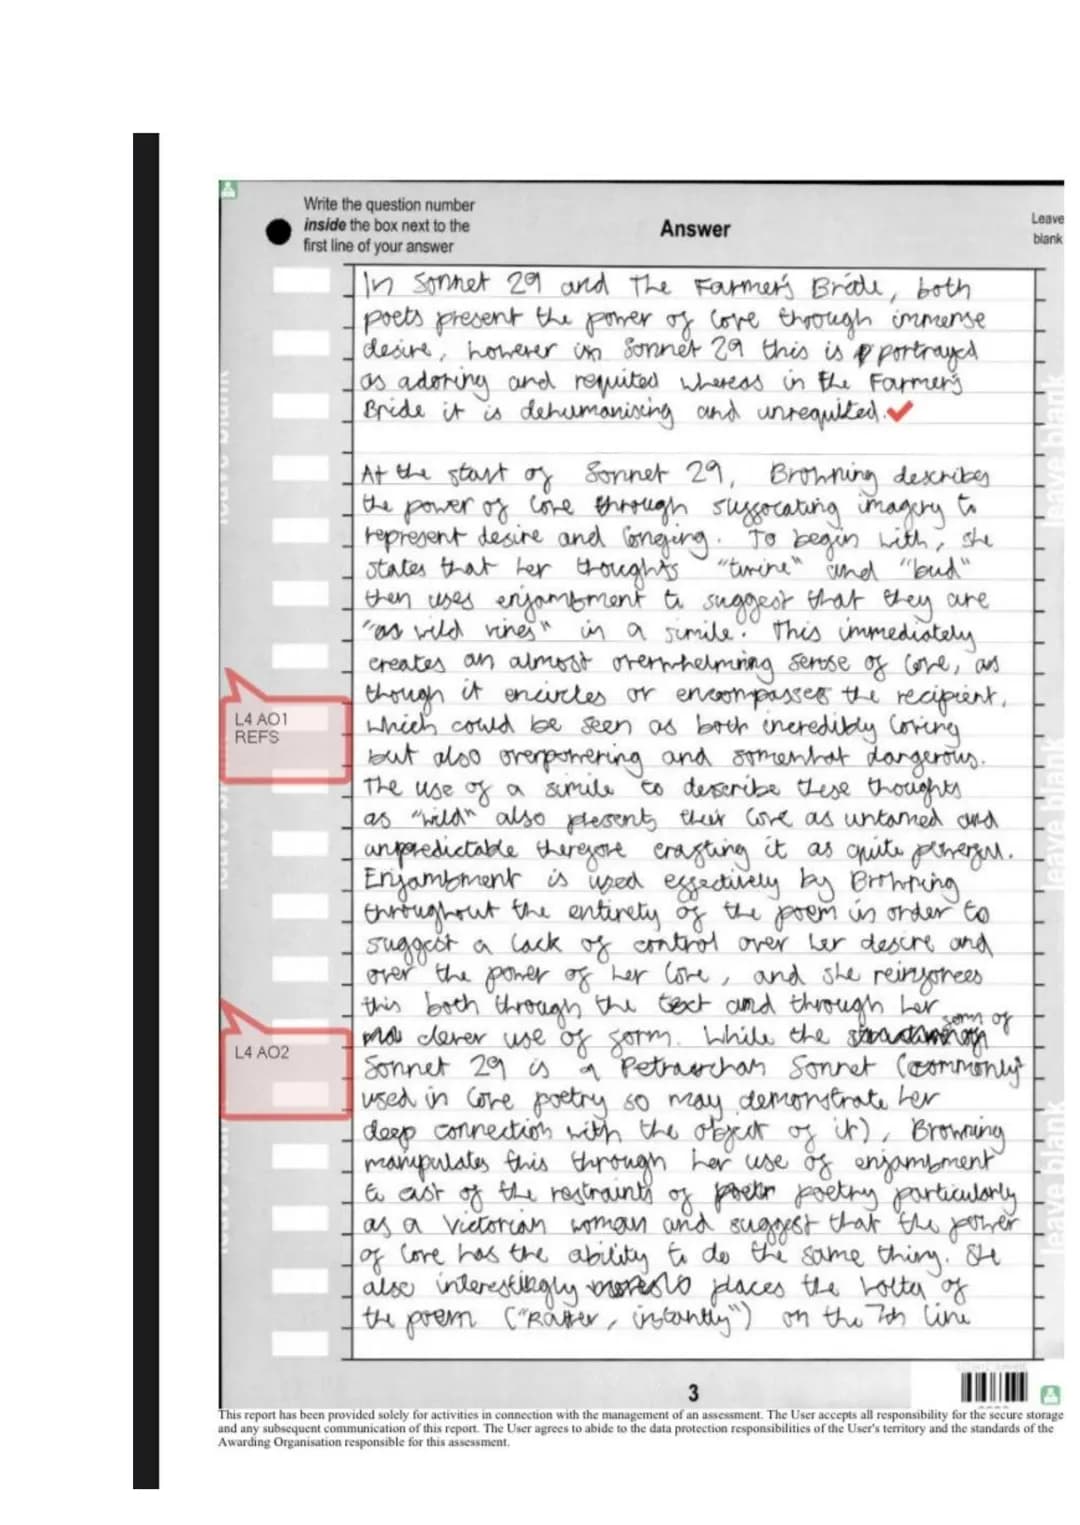 Write the question number
inside the box next to the
first line of your answer
Answer
Leave
blank
In Sonnet 29 and The Farmer's Bride, both
poets present the power of love through immense
desire, however in Sonnet 29 this is portrayed
as adoring and requited whereas in the Farmer's
Bride it is dehumanising and unrequited.
At the start of Sonnet 29, Browning describes
the power of love through suffocating imagery to
represent desire and longing. To begin with, she
states that her thoughts "twine" and "bud"
then uses enjambment to suggest that they are
"as wild vines" in a simile. This immediately
creates an almost overwhelming sense of love, as
though it encircles or encompasses the recipient,
which could be seen as both incredibly loving
but also overpowering and somewhat dangerous.
The use of a simile to describe these thoughts
as "wild" also presents their love as untamed and
unpredictable therefore crafting it as quite powerful.
Enjambment is used effectively by Browning
throughout the entirety of the poem in order to
suggest a lack of control over her desire and
over the power of her love, and she reinforces
this both through the text and through her
clever use of form. While the form of
Sonnet 29 is a Petrarchan Sonnet (commonly
used in love poetry so may demonstrate her
deep connection with the object of it), Browning
manipulates this through her use of enjambment
to cast of the restraints of poetry particularly
as a Victorian woman and suggest that the power
of love has the ability to do the same thing. She
also interestingly places the volta of
the poem ("Rather, instantly") on the 7th line
L4 AO1
REFS
L4 AO2
leave blank
leave blank
leave blank
3
This report has been provided solely for activities in connection with the management of an assessment. The User accepts all responsibility for the secure storage
and any subsequent communication of this report. The User agrees to abide to the data protection responsibilities of the User's territory and the standards of the
Awarding Organisation responsible for this assessment.